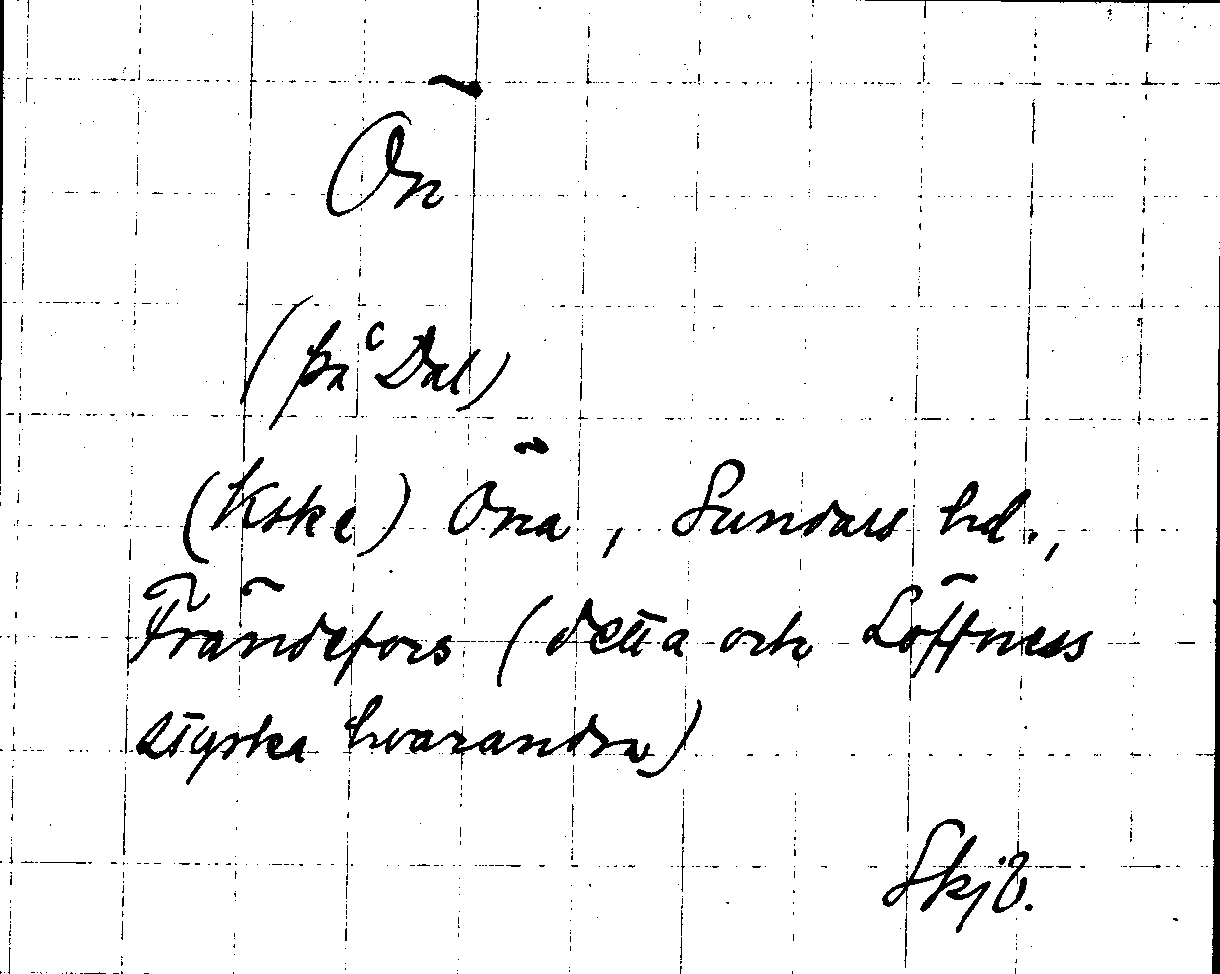 Ön
(på Dal)
(Kske) Öna, Sundals hd.,
Frändefors (detta och Löffness
styrka hvarandra)
Skjb.